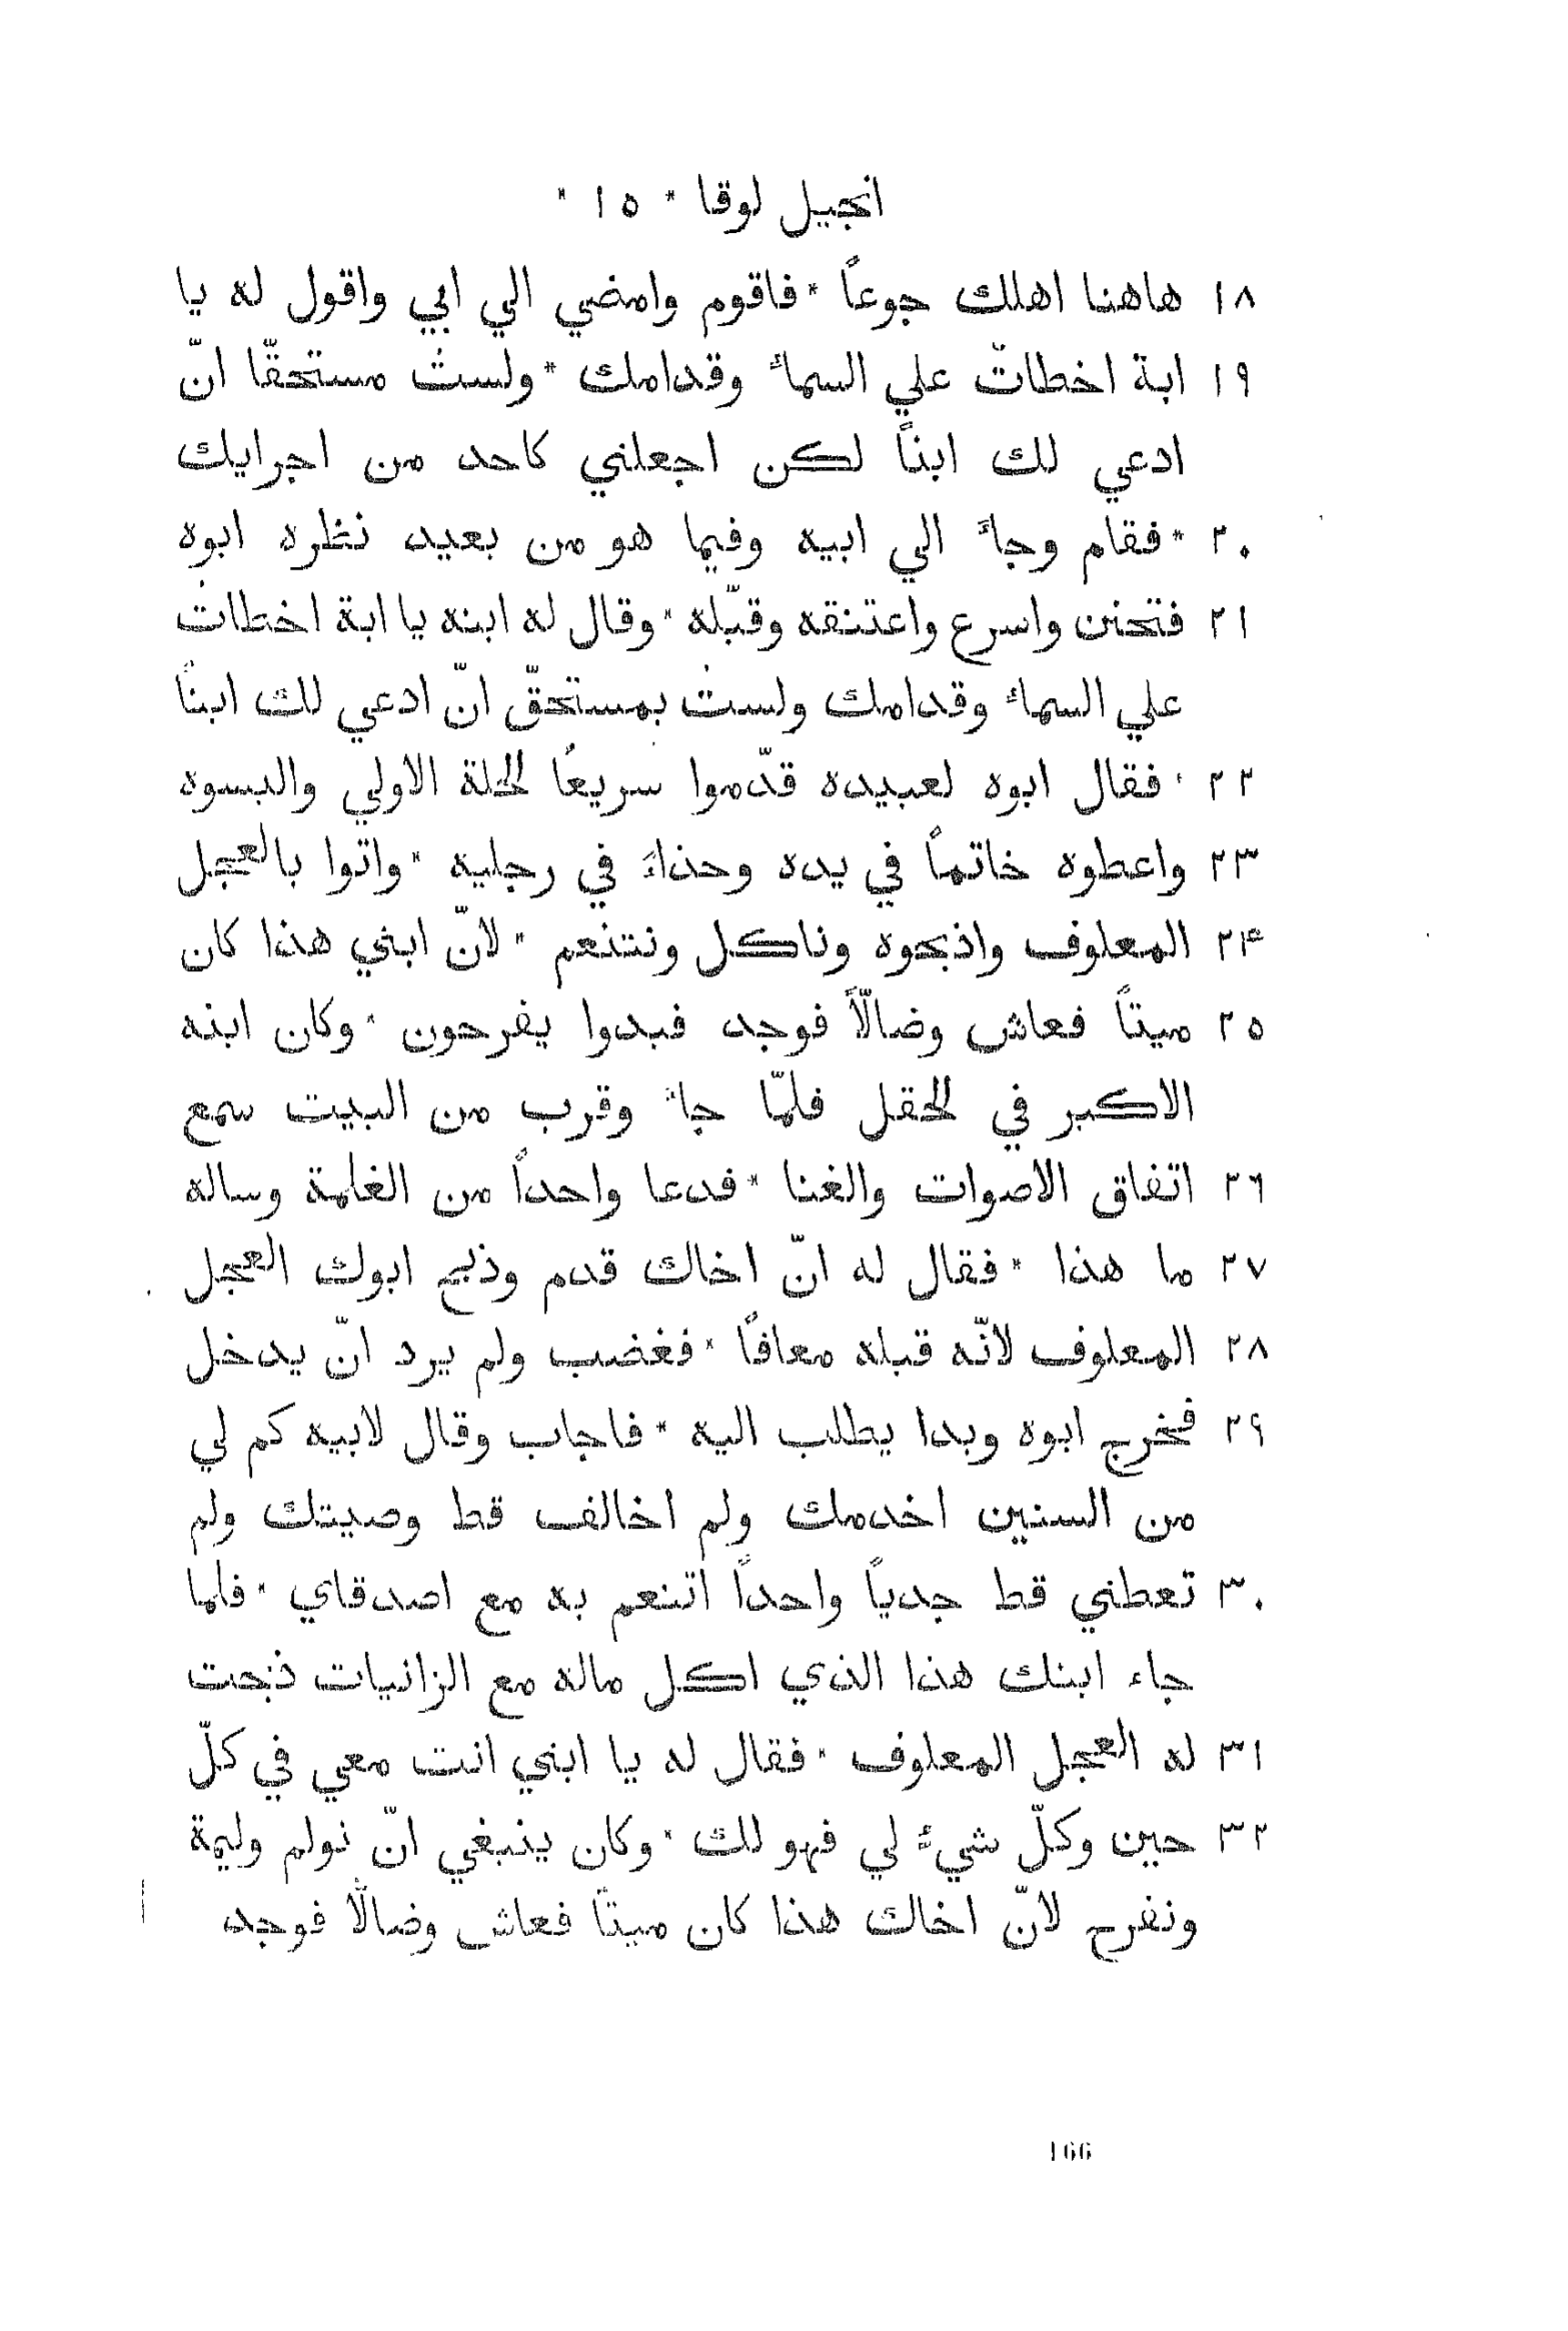 انجيل لوقا * ١٥ *
١٨ هاهنا اهلك جوعاً * فاقوم وامضي الي ابي واقول له يا
١٩ ابة اخطاتّ علي السماءُ وقدامك * ولستُ مستحقّا انّ
ادعي لك ابناً لكن اجعلني كاحد من اجرايك
٢٠ * فقام وجاءَ الي ابيه وفيما هو من بعيد نظره ابوه
٢١ فتحنن واسرع واعتنقه وقبّله * وقال له ابنه يا ابة اخطاتُ
علي السماءُ وقدامك ولستُ بمستحقّ انّ ادعي لك ابناً
٢٢ * فقال ابوه لعبيده قدّموا سريعاً الحلة الاولي والبسوه
٢٣ واعطوه خاتماً في يده وحذاءً في رجليه * واتوا بالعجل
٢۴ المعلوف واذبحوه وناكل ونتنعم * لانّ ابني هذا كان
٢٥ ميتاً فعاش وضالّاً فوجد فبدوا يفرحون * وكان ابنه
الاكبر في الحقل فلمّا جاءَ وقرب من البيت سمع
٢٦ اتفاق الاصوات والغنا * فدعا واحداً من الغلمة وساله
٢٧ ما هذا * فقال له انّ اخاك قدم وذبح ابوك العجل
٢٨ المعلوف لانّه قبله معافاً * فغضب ولم يرد انّ يدخل
٢٩ فخرج ابوه وبدا يطلب اليه * فاجاب وقال لابيه كم لي
من السنين اخدمك ولم اخالف قط وصيتك ولم
٣٠ تعطني قط جدياً واحداً اتنعم به مع اصدقاي * فلما
جاء ابنك هذا الذي اكل ماله مع الزانيات ذبحت
٣١ له العجل المعلوف * فقال له يا ابني انت معي في كلّ
٣٢ حين وكلّ شيءُ لي فهو لك * وكان ينبغي انّ نولم وليمة
ونفرح لانّ اخاك هذا كان ميتاً فعاش وضالّا فوجد
166